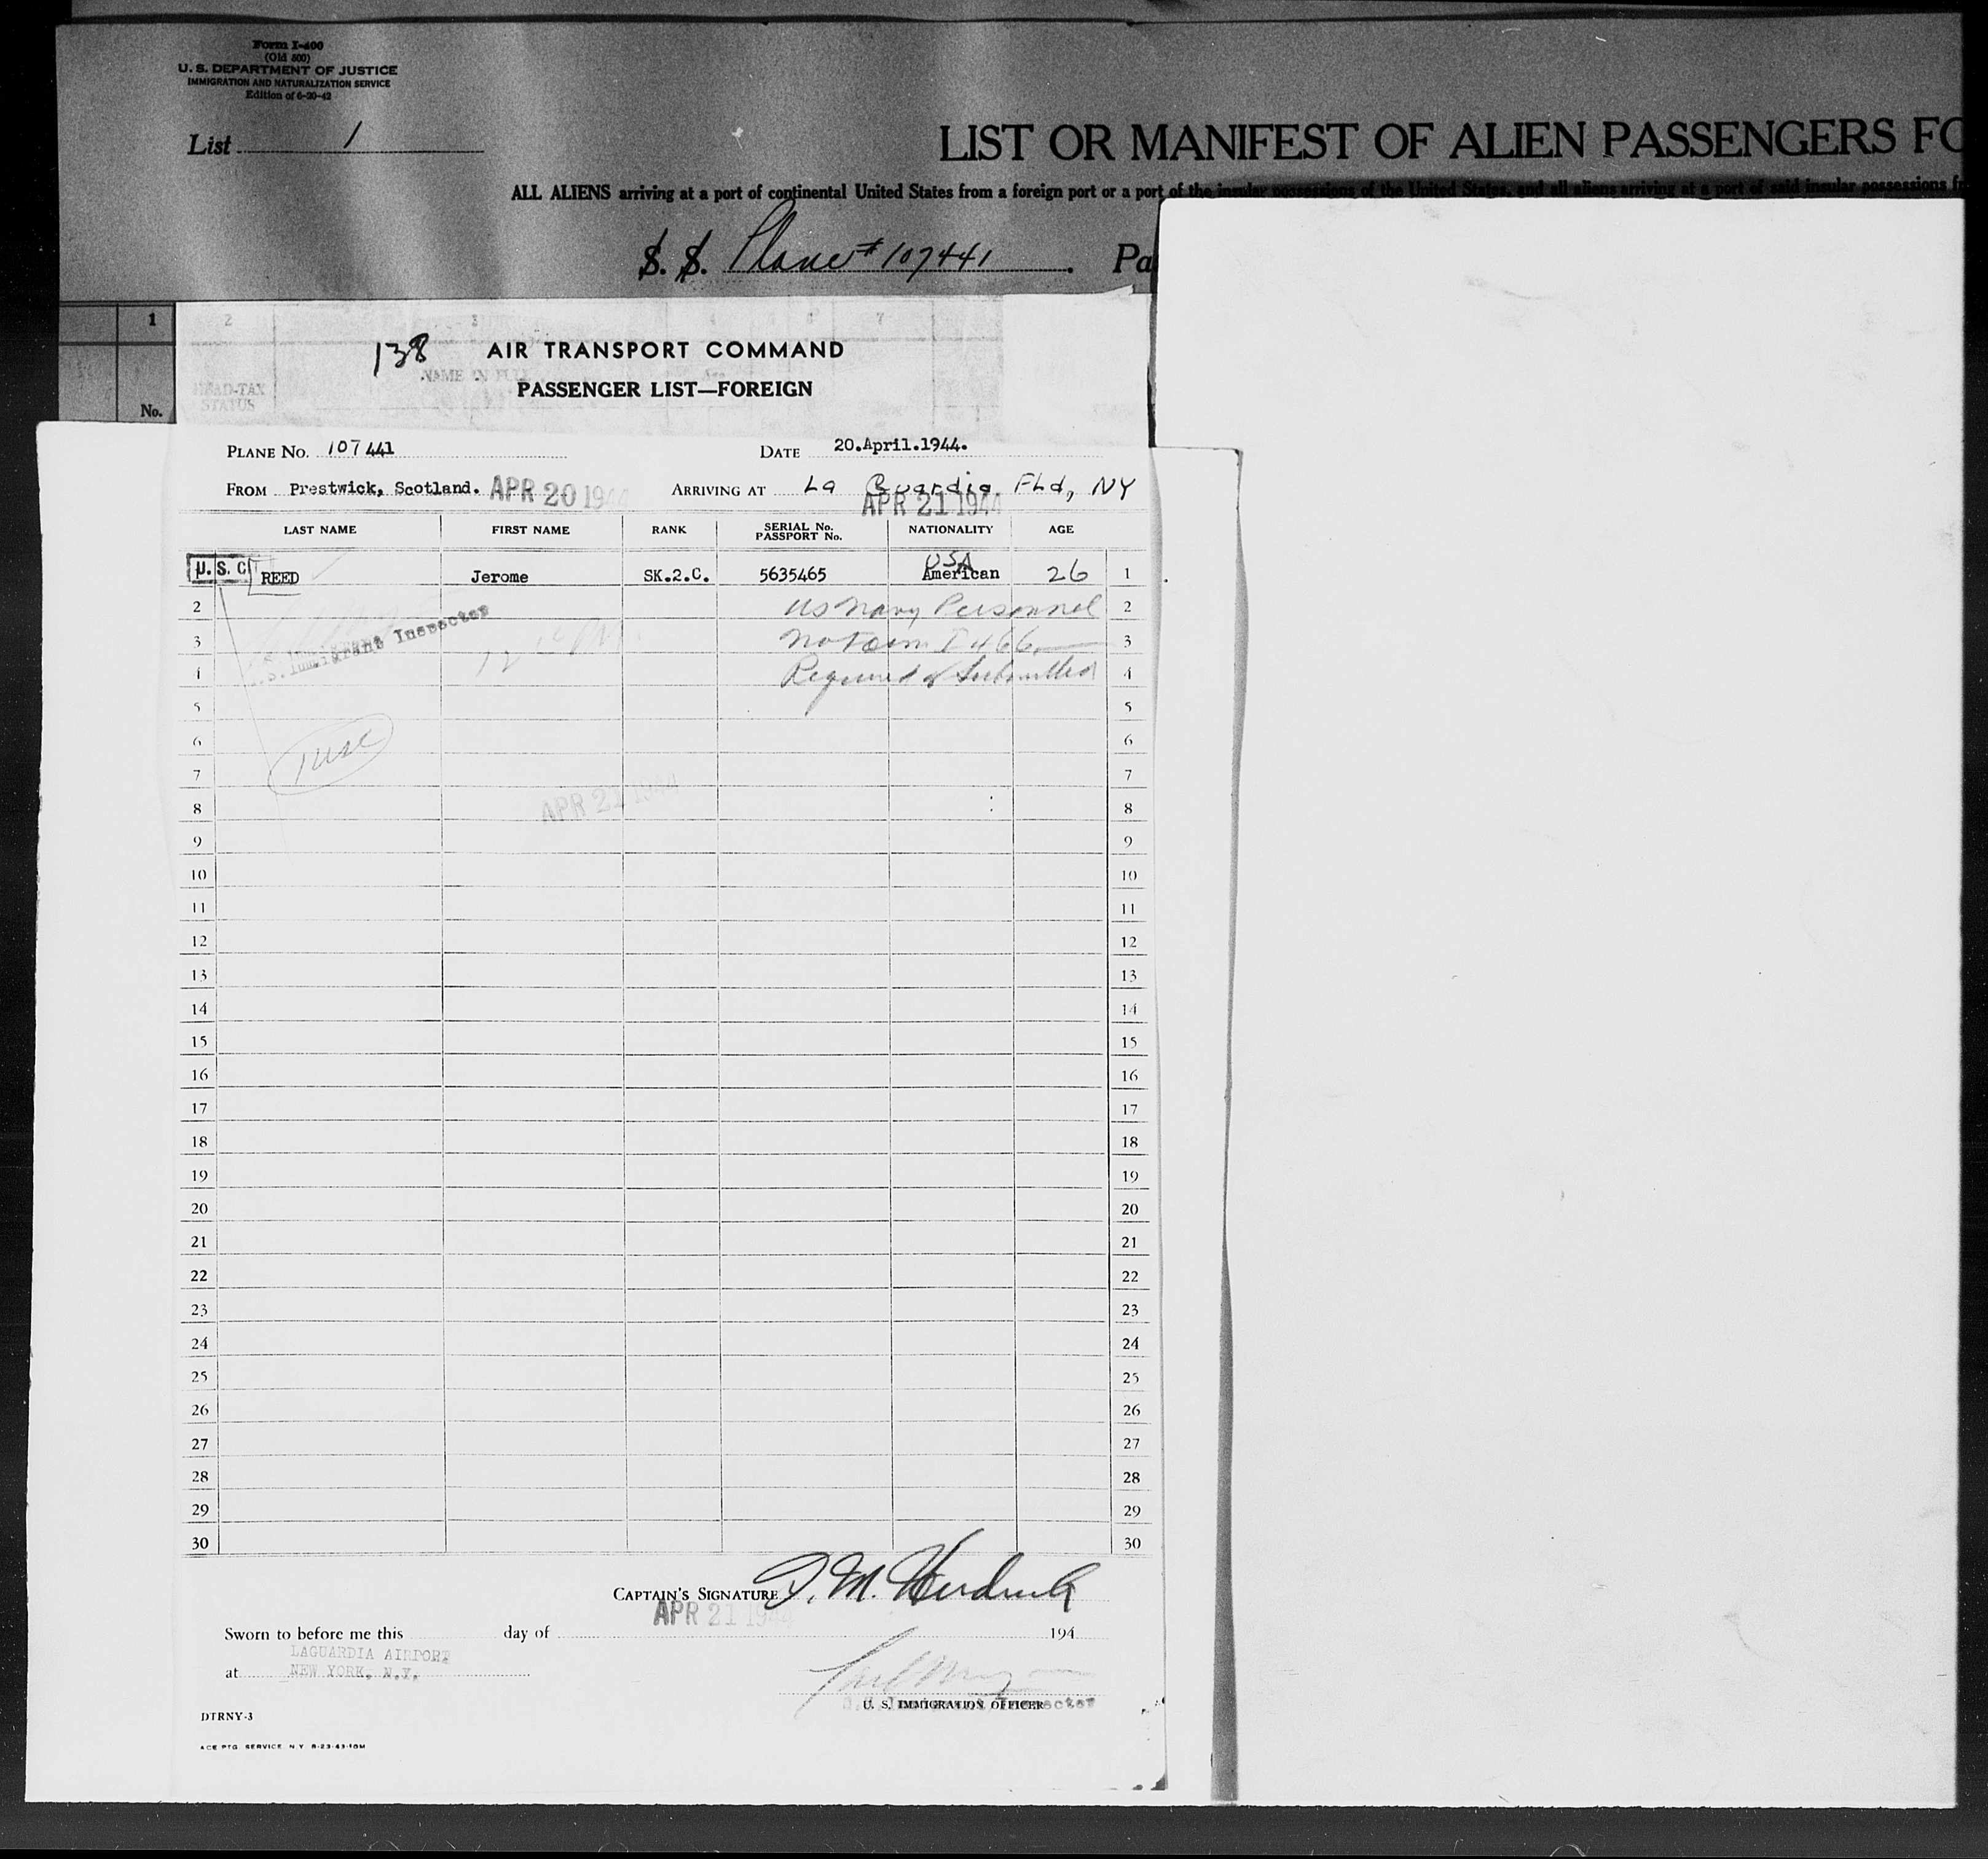 Form I-400
(Old 500)
U. S. DEPARTMENT OF JUSTICE
IMMIGRATION AND NATURALIZATION SERVICE
Edition of 6-20-42
List 1
LIST OR MANIFEST OF ALIEN PASSENGERS FO
ALL ALIENS arriving at a port of continental United States from a foreign port or a port of the insular possessions of the United States, and all aliens arriving at a port of said insular possessions fr
S. S. Plane # 107441 . Pa
1 2 3 4 7
138 AIR TRANSPORT COMMAND
HEAD-TAX STATUS
NAME IN FULL
PASSENGER LIST—FOREIGN
No.
PLANE No. 107441 DATE 20.April.1944.
FROM Prestwick, Scotland. APR 20 1944 ARRIVING AT La Guardia Fld, NY
APR 21 1944
LAST NAME FIRST NAME RANK SERIAL No. PASSPORT No. NATIONALITY AGE
U.S.C REED Jerome SK.2.C. 5635465 USA American 26 1
2 US Navy Personnel 2
3 U.S. Immigrant Inspector No Form I 466 3
4 Required or Submitted 4
5 5
6 6
1 USC
7 7
8 APR 21 1944 8
9 9
10 10
11 11
12 12
13 13
14 14
15 15
16 16
17 17
18 18
19 19
20 20
21 21
22 22
23 23
24 24
25 25
26 26
27 27
28 28
29 29
30 30
CAPTAIN'S SIGNATURE
APR 21 1944
Sworn to before me this day of 194
LAGUARDIA AIRPORT
at NEW YORK, N.Y.
U. S. IMMIGRATION OFFICER
DTRNY-3
ACE PTG. SERVICE N.Y. 8-23-43-10M